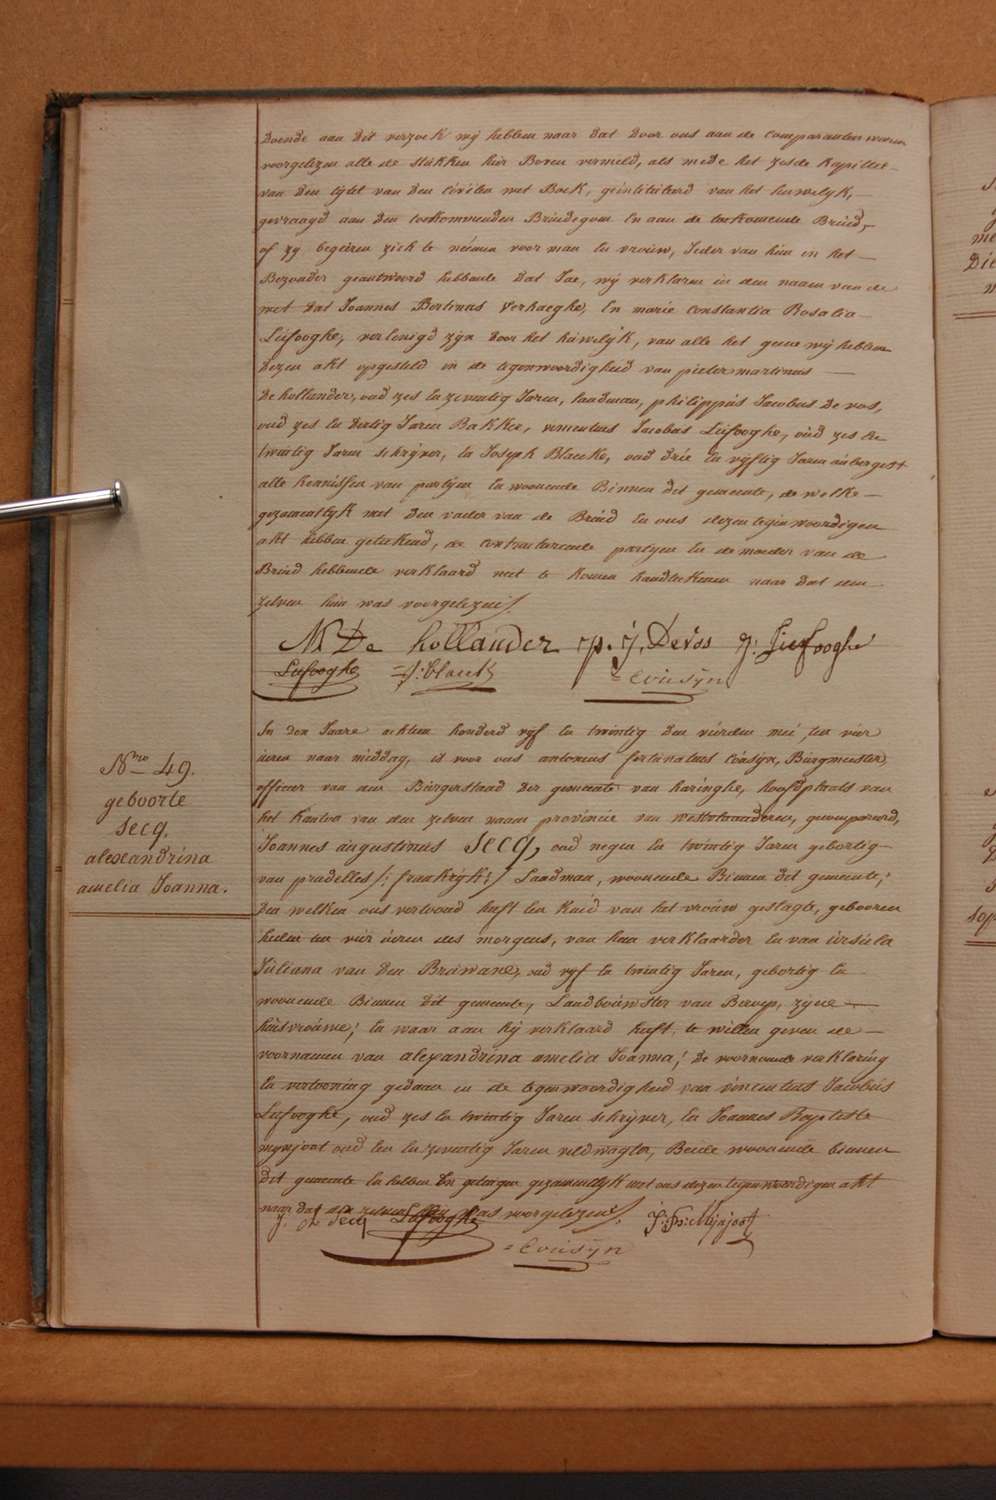 doende aan dit verzoek wij hebben naar dat door ons aan de comparanten waren
voorgelezen alle de stukken hier Boven vermeld, als mede het zesde kapittel
van den tijtel van den civilen wet Boek, geintituleerd van het huwelijk,
gevraagd aan den toekommenden Bruidegom En aan de toekomende Bruid,
of zij begeiren zich te néemen voor man En vrouw, Ieder van hun in het
Bezonder geantwoord hebbende dat Jae, wij verklaren in den naam van de
wet dat Joannes Bertinus Verhaeghe, En marie constantia Rosalia
Liefooghe, verEenigd zijn door het huwelijk, van alle het geene wij hebben
dezen akt opgesteld in de tegenwoordigheid van pieter martinus
De hollander, oud zes En zeventig Jaren, landman, philippus Jacobus De vos,
oud zes En dertig Jaren Bakker, vincentius Jacobus Liefooghe, oud zes En
twintig Jaren schrijver, En Joseph Blaeke, oud drie En vijftig Jaren aubergest
alle kennissen van partijen En woonende Binnen dit gemeente, de welke
gezamentlijk met den vader van de Bruid En ons dezen tegenwoordigen
akt hebben geteekend, de contracterende partijen En de moeder van de
Bruid hebbende verklaard niet te konnen handteekenen naar dat den
zelven hun was voorgelezen /.
M De hollander p. j. Devos J: Liefooghe
Liefooghe =j: Blaeck
= Cousÿn
In den Jaare achtien honderd vijf En twintig den vierden mei, ten vier
uren naar middag, is voor ons antonius fortunatus Cousÿn, Burgmeester,
officier van den Burgerstaad der gemeente van haringhe, hoofdplaats van
het kanton van den zelven naam provincie van westvlaanderen, gecompareerd,
Joannes augustinus Secq, oud negen En twintig Jaren gebortig
van pradelles /: frankrijk :/ Landman, woonende Binnen dit gemeente;
den welken ons vertoond heeft een kind van het vrouw geslagte, gebooren
heden ten vier uren des morgens, van hem verklaarder En van ursula
Juliana van den Bruwane, oud vijf En twintig Jaren, gebortig En
woonende Binnen dit gemeente, Landbouwster van Beroep, zijne
huisvrouwe; En waar aan hij verklaard heeft te willen geven de
voornamen van alexandrina amelia Joanna; de voornoemde verklaring
En vertooning gedaan in de tegenwoordigheid van vincentius Jacobus
Liefooghe, oud zes En twintig Jaren schrijver, En Joannes Baptiste
mynjoot oud Een En zeventig Jaren veldwagter, Beide woonende binnen
dit gemeente En hebben de getuigen gezamentlijk met ons dezen tegenwoordigen akt
naar dat den zelven hun was voorgelezen /.
J. A Secq Liefooghe J: Bte: Mijnjoot
= Cousÿn
Nro 49.
geboorte
Secq,
alexandrina
amelia Joanna.